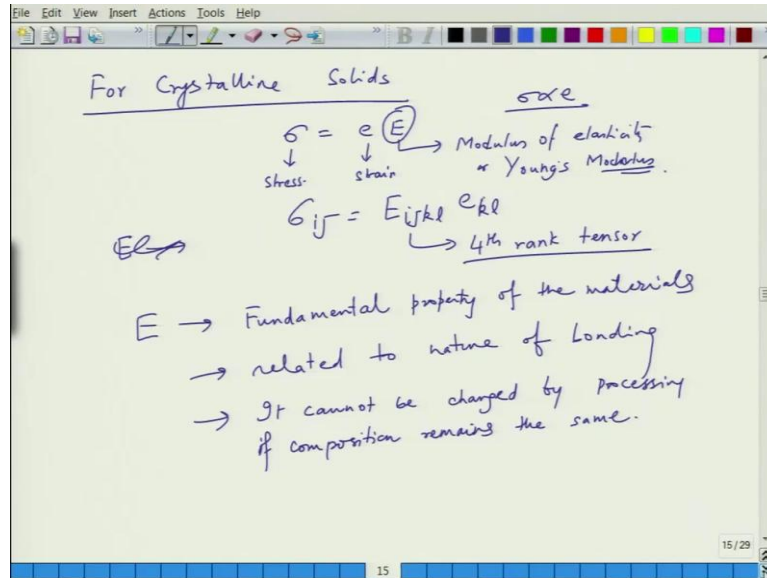 File Edit View Insert Actions Tools Help
For Crystalline Solids
σ ∝ e
σ = e E
Modulus of elasticity
or Young's Modulus.
stress. strain
σij = Eijkl ekl
4th rank tensor
E → Fundamental property of the materials
→ related to nature of bonding
→ It cannot be changed by processing
if composition remains the same.
15/29
15